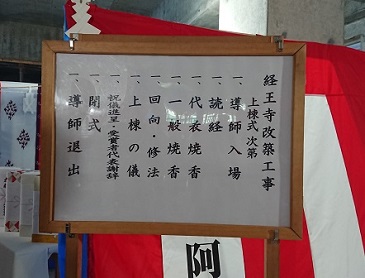 経王寺改築工事
上棟式次第
一、導師入場
一、読経
一、代表焼香
一、一般焼香
一、回向・修法
一、上棟の儀
一、祝儀進呈・受賞者代表謝辞
一、閉式
一、導師退出
阿